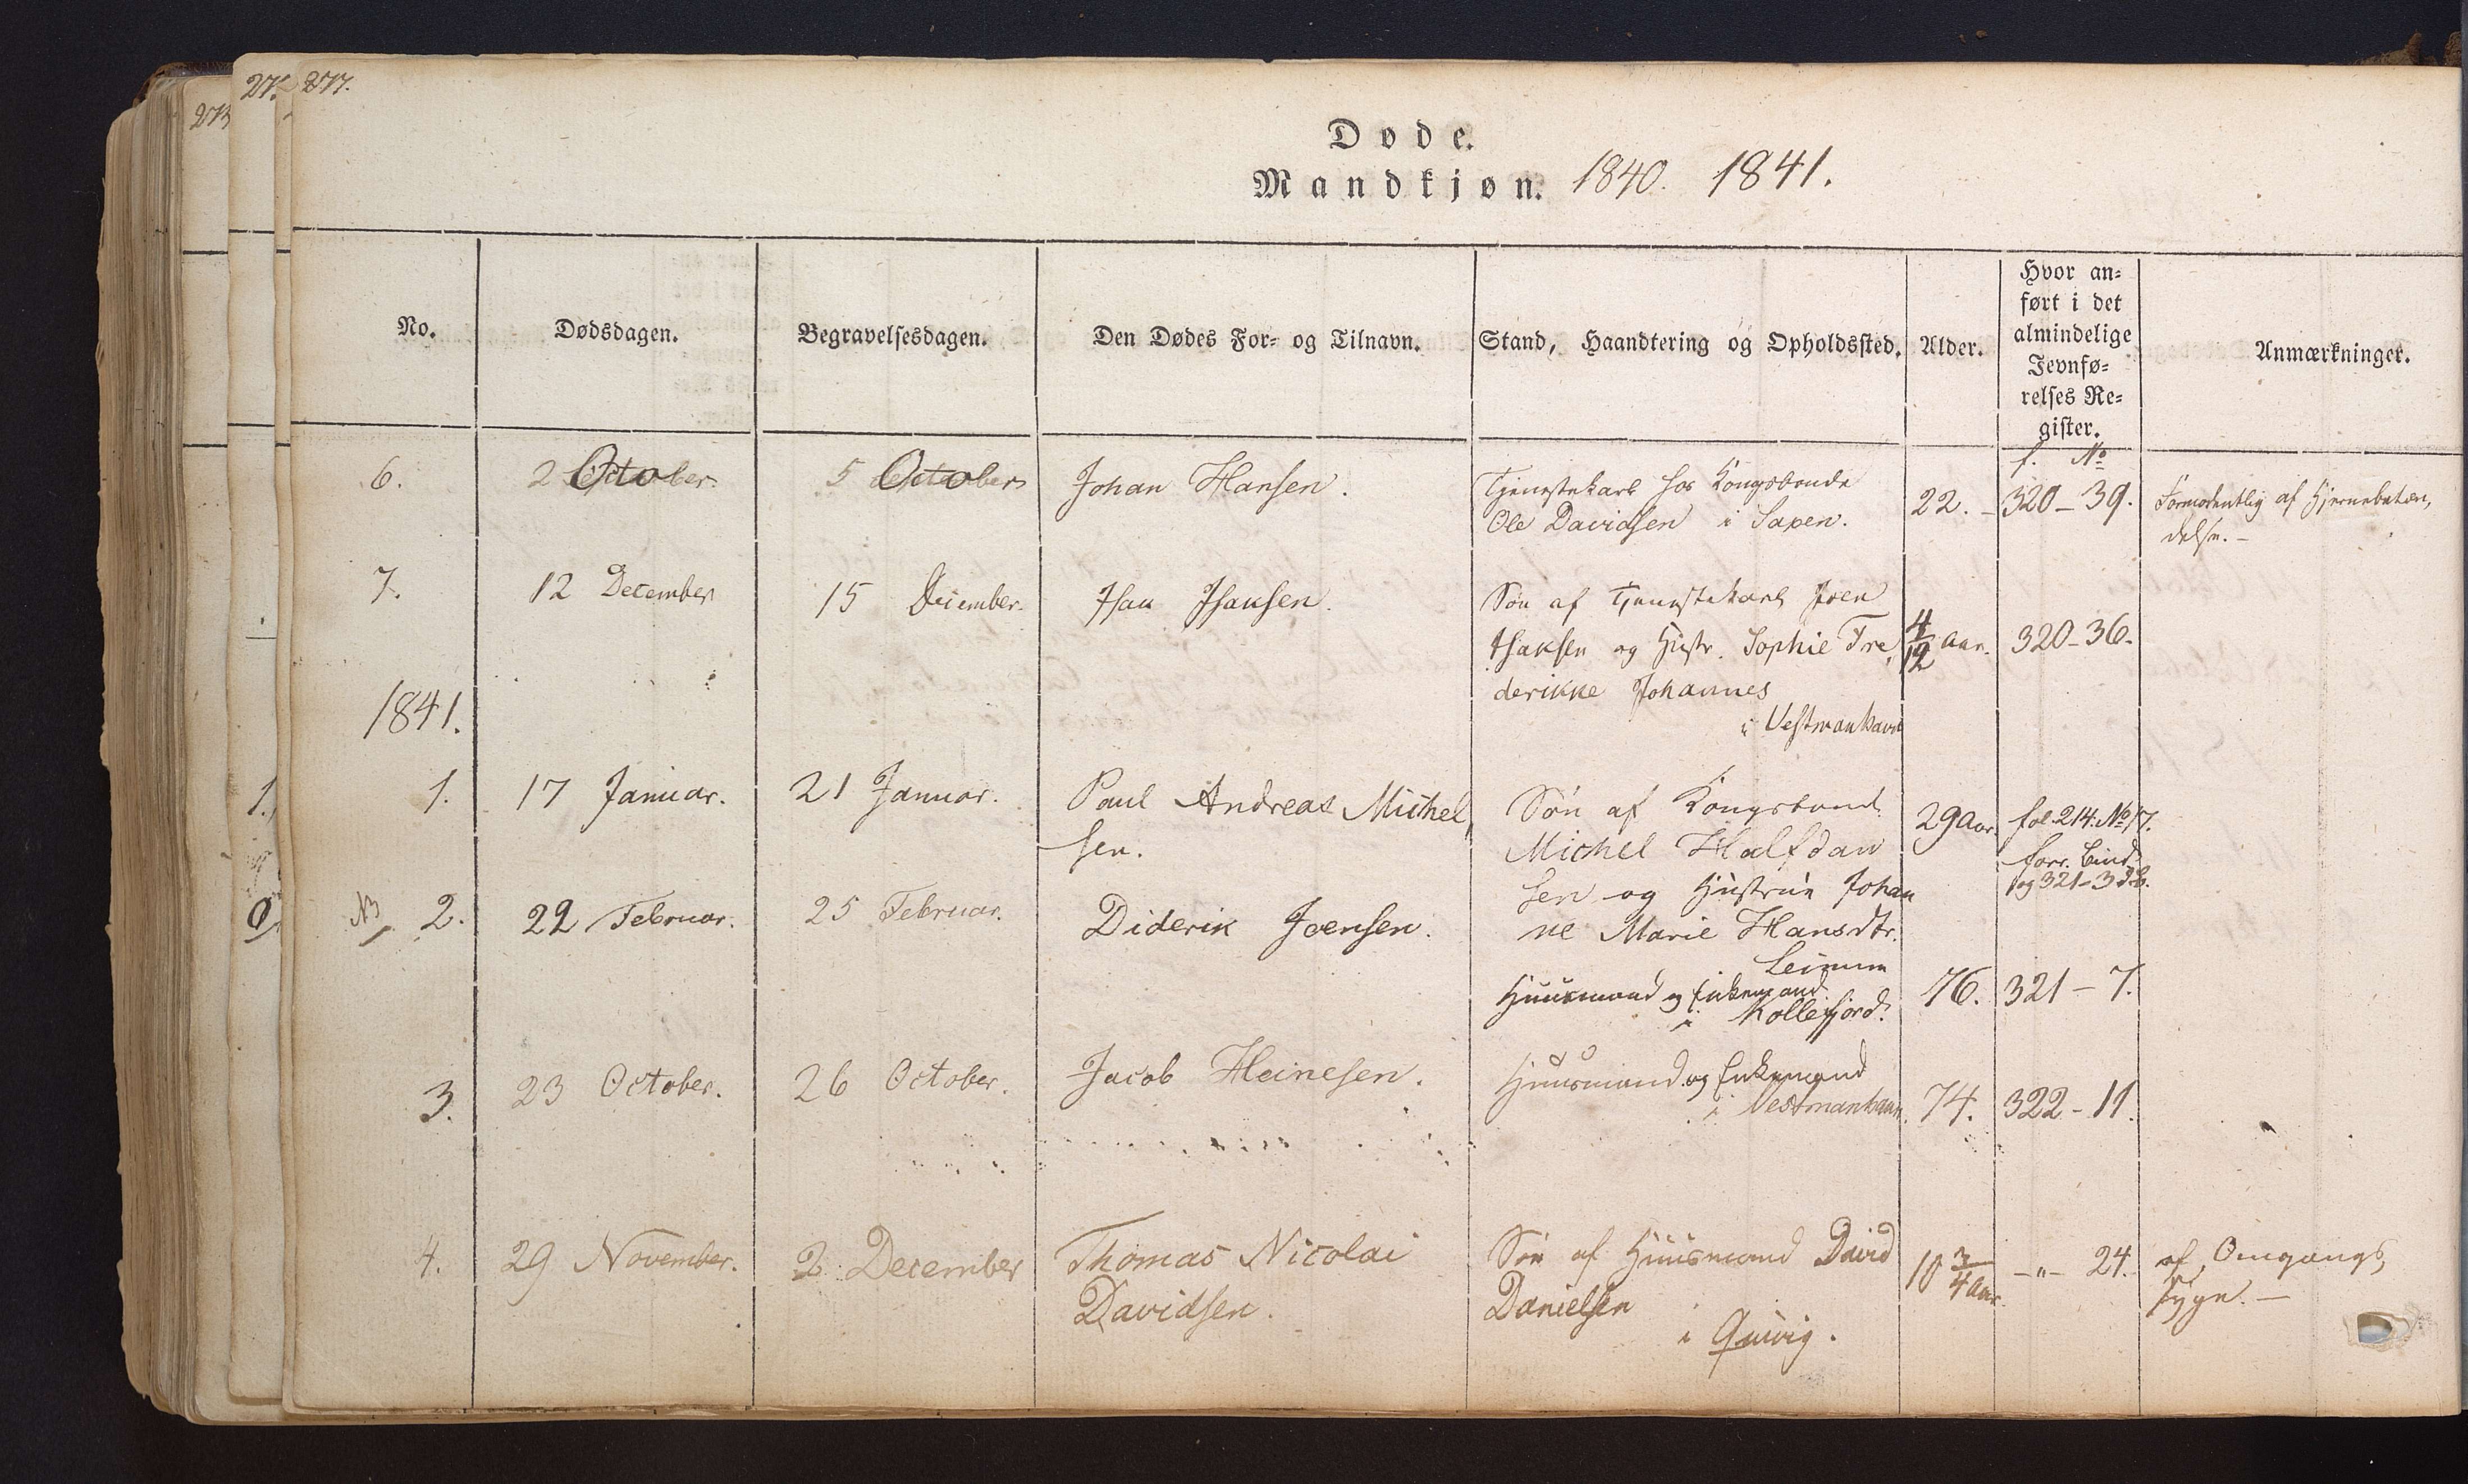 273
275
277.
Døde.
Mandkjøn. 1840. 1841.
No.
Dødsdagen.
Begravelsesdagen.
Den Dødes For- og Tilnavn.
Stand, Haandtering og Opholdssted.
Alder.
Hvor an-
ført i det
almindelige
Jevnfø-
relses Re-
gister.
Anmærkninger.
f. No
6.
2 October
5 October
Johan Hansen.
Tjenestekarl hos Kongsbonde
Ole Davidsen i Saxen.
22. -
320-39.
Formodentlig af Hjernebetæn,
delse. -
7.
12 December
15 December.
Isak Isaksen.
Søn af Tjenestekarl Joen
Isaksen og Hustr. Sophie Fre,
derikke Johannes
i Vestmanhavn
4/12 Aar.
320-36.
1841.
1.
17 Januar.
21 Januar.
Paul Andreas Michel,
sen.
Søn af Kongsbond
Michel Halfdan
sen og Hustrue Johan
ne Marie Hansdtr.
Leinum
29 Aar
fol. 214. No 17.
forr. Bind
og 321-3 d.B.
NB 2.
22 Februar.
25 Februar.
Diderik Joensen.
Huusmand og Enkemand
i Kollefjord.
76.
321-7.
3.
23 October.
26 October.
Jacob Heinesen.
Huusmand og Enkemand
i Vestmanhavn.
74.
322-11.
4.
29 November.
2 December
Thomas Nicolai
Davidsen.
Søn af Huusmand David
Danielsen
i Qvivig.
10 3/4 Aar.
-"- 24.
af Omgangs,
syge. -